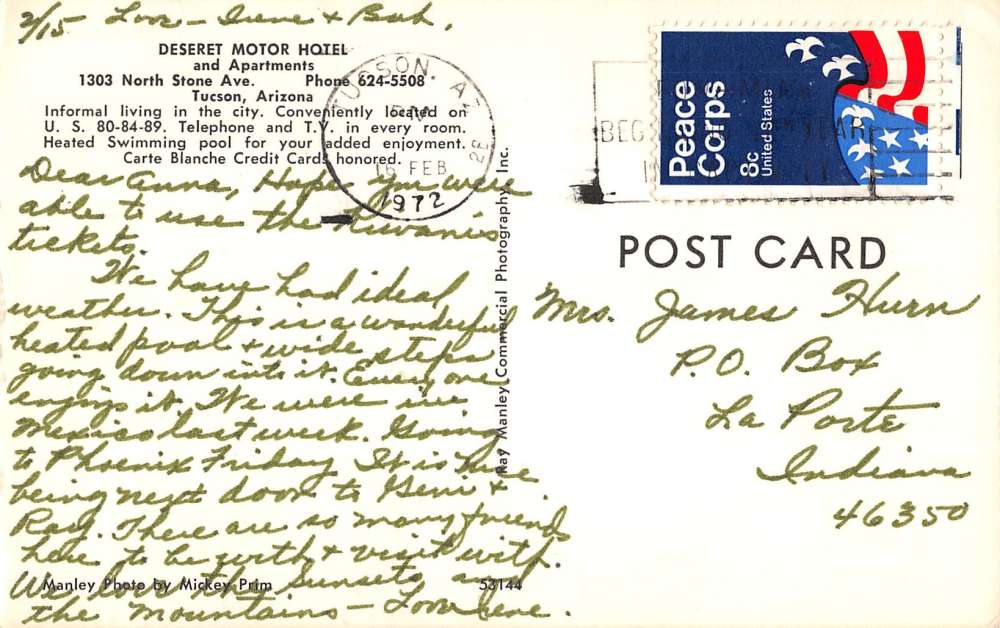 2/15 Love - Irene + Bob.
DESERET MOTOR HOTEL
and Apartments
1303 North Stone Ave. Phone 624-5508
Tucson, Arizona
Informal living in the city. Conveniently located on
U. S. 80-84-89. Telephone and T.V. in every room.
Heated Swimming pool for your added enjoyment.
Carte Blanche Credit Cards honored.
TUCSON, AZ
PM
16 FEB
1972
Peace
Corps
8c
United States
Dear Anna, Hope you were
able to use the Kiwanis
tickets.
We have had ideal
weather. This is a wonderful
heated pool + wide steps
going down into it. Everyone
enjoys it. We were in
Mexico last week. Going
to Phoenix Friday. It is nice
being next door to Geni +
Ray. There are so many friends
here to be with + visit with.
We love the sunsets and
the mountains - Love Irene.
Manley Photo by Mickey Prim
53144
Ray Manley Commercial Photography, Inc.
POST CARD
Mrs. James Hurn
P.O. Box
La Porte
Indiana
46350